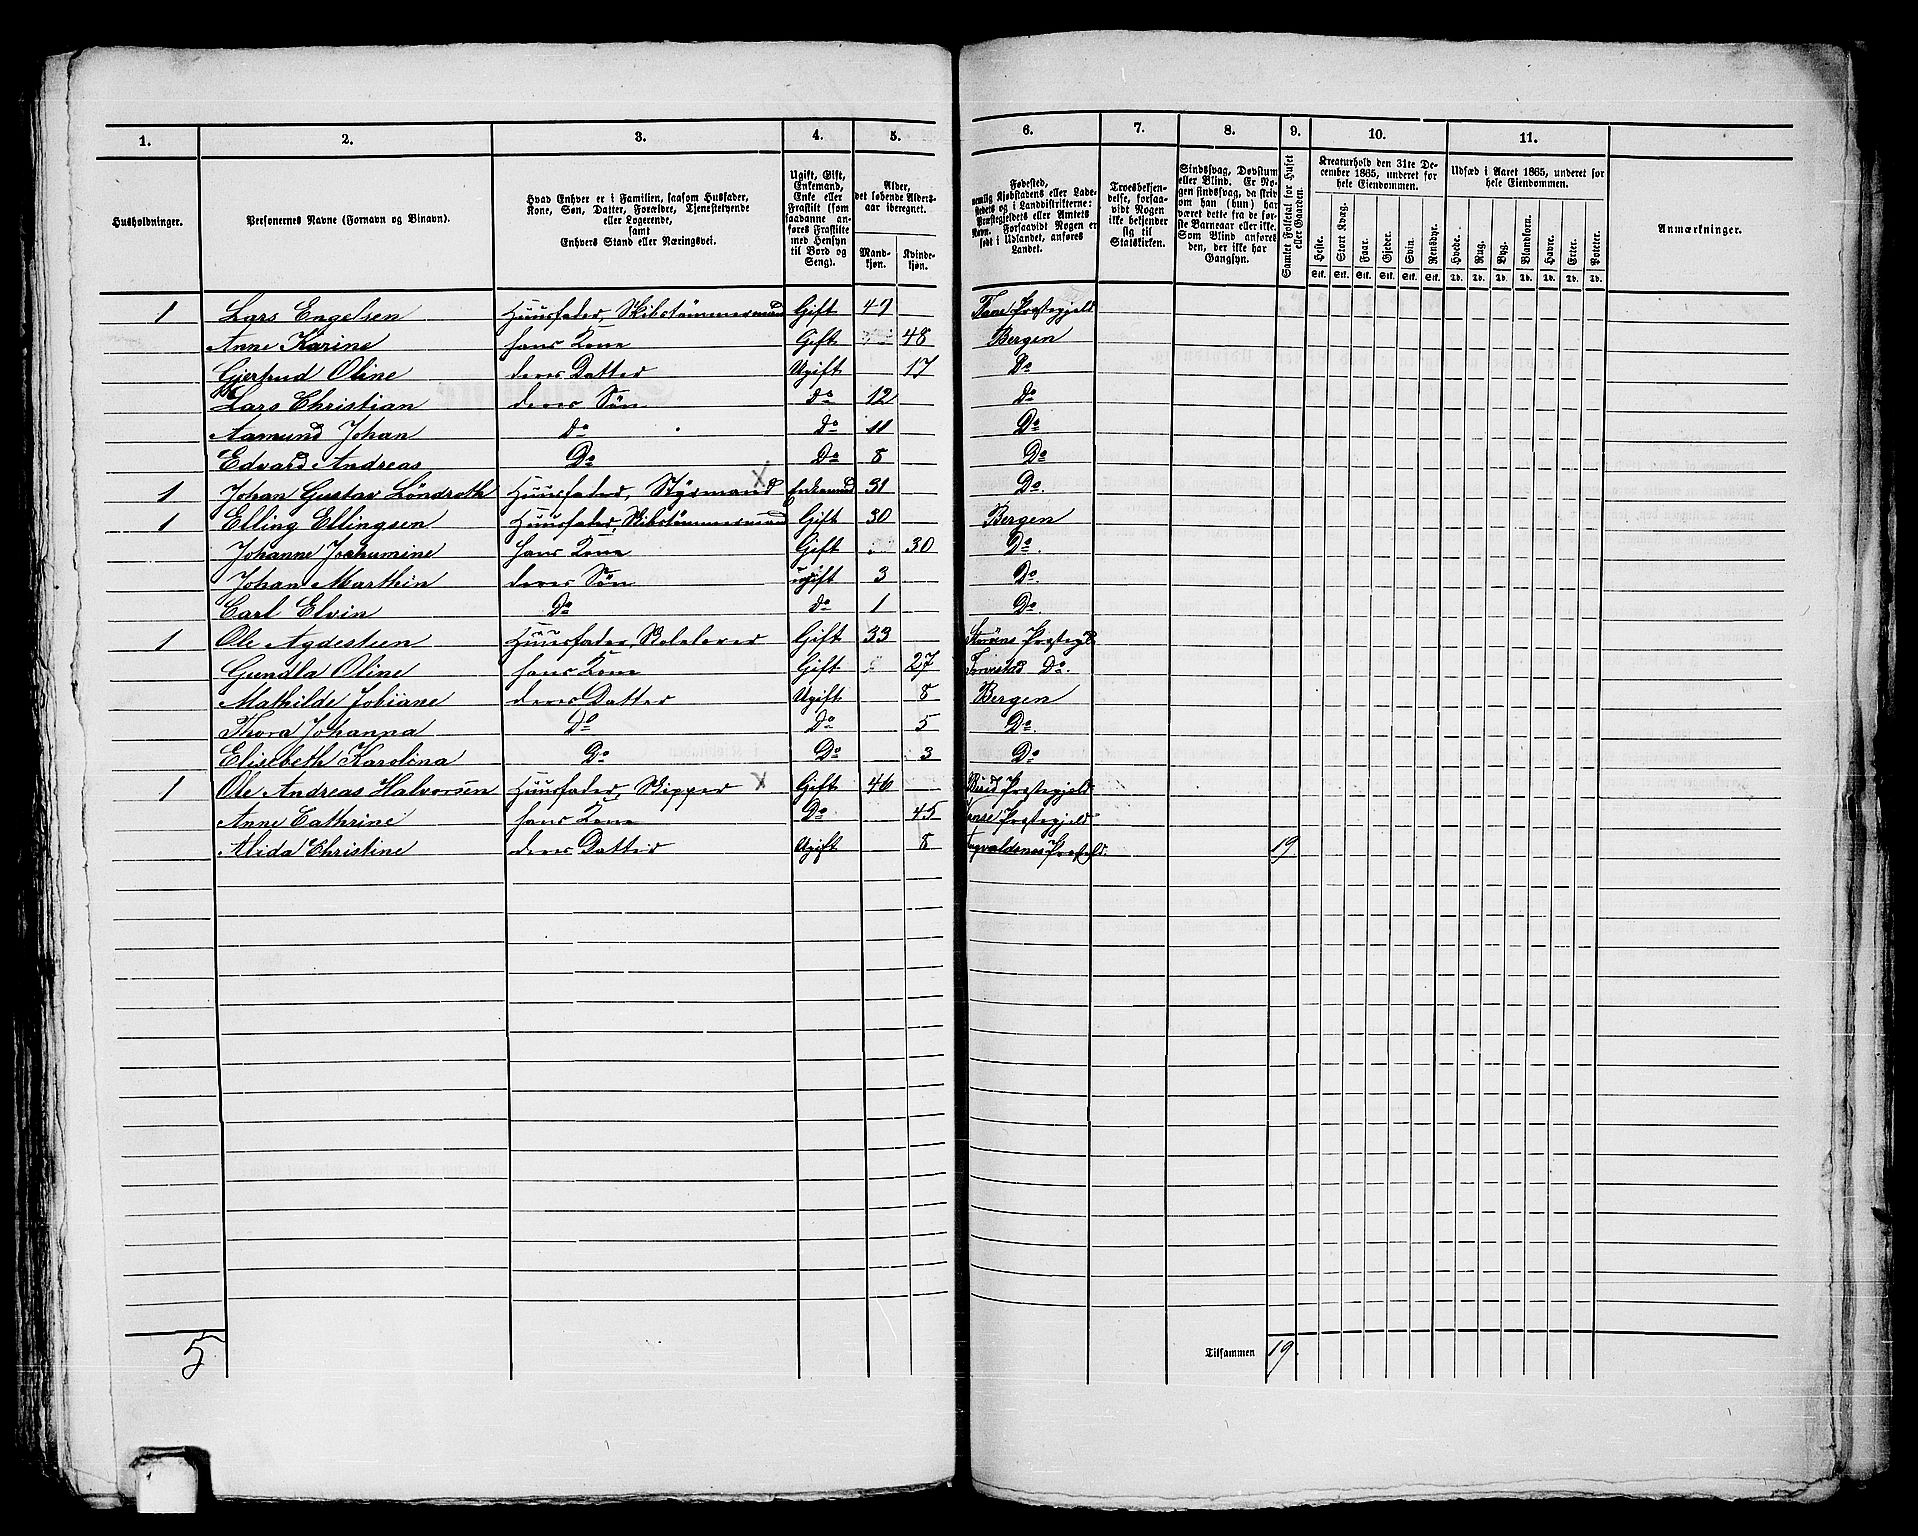 1. 2. 3. 4. 5. 6. 7. 8. 9. 10. 11.
Husholdninger.
Personernes Navne (Fornavn og Binavn).
Hvad Enhver er i Familien, saasom Husfader,
Kone, Søn, Datter, Forældre, Tjenestetyende
eller Logerende,
samt
Enhvers Stand eller Næringsvei.
Ugift, Gift,
Enkemand,
Enke eller
Fraskilt (som
saadanne an-
føres Fraskilte
med Hensyn
til Bord og
Seng).
Alder,
det løbende Alders-
aar iberegnet.
Mand-
kjøn.
Kvinde-
kjøn.
Fødested,
nemlig Kjøbstadens eller Lade-
stedets og i Landdistrikterne:
Præstegjeldets eller Amtets
Navn. Forsaavidt Nogen er
født i Udlandet, anføres
Landet.
Troesbekjen-
delse, forsaa-
vidt Nogen
ikke bekjender
sig til
Statskirken.
Sindssvag, Døvstum
eller Blind. Er No-
gen sindssvag, da skriv
om han (hun) har
været dette fra de før-
ste Barneaar eller ikke.
Som Blind anføres
den, der ikke har
Gangsyn.
Samlet Folketal for Huset
eller Gaarden.
Kreaturhold den 31te De-
cember 1865, underet for
hele Eiendommen.
Heste. Stort Kvæg. Faar. Gjeder. Svin. Rensdyr.
Stk. Stk. Stk. Stk. Stk. Stk.
Udsæd i Aaret 1865, underet for
hele Eiendommen.
Hvede. Rug. Byg. Blandkorn. Havre. Erter. Poteter.
Td. Td. Td. Td. Td. Td. Td.
Anmærkninger.
1 Lars Engelsen Huusfader, Skibstømmermand Gift 47 Præstegjeld
Anne Karine hans Kone Gift 48 Bergen
Gjertrud Oline deres Datter Ugift 17 Do
Lars Christian deres Søn do 12 do
Aamund Johan Do Do 11 Do
Edvard Andreas Do Do 8 Do
1 Johan Gustav Löndroth Huusfader, Styrmand X Enkemand 31 Do.
1 Elling Ellingsen Huusfader, Skibstømmermand Gift 30 Bergen
Johanne Jochumine hans Kone Gift 30 Do.
Johan Marthin deres Søn ugift 3 Do.
Carl Elvin Do do 1 Do.
1 Ole Agdestien Huusfader, Gift 33
Gundla Oline hans Kone Gift 27 Do.
Mathilde Jobiane deres Datter Ugift 8 Bergen
Thora Johanna Do Do 5 Do.
Elisebeth Karolina Do Do 3 Do
1 Ole Andreas Halvorsen Huusfader, Skipper X Gift 46 Præstegjeld
Anne Cathrine hans Kone Do 45 Præstegjeld
Alida Christine deres Datter Ugift 8 19
5 Tilsammen 19.